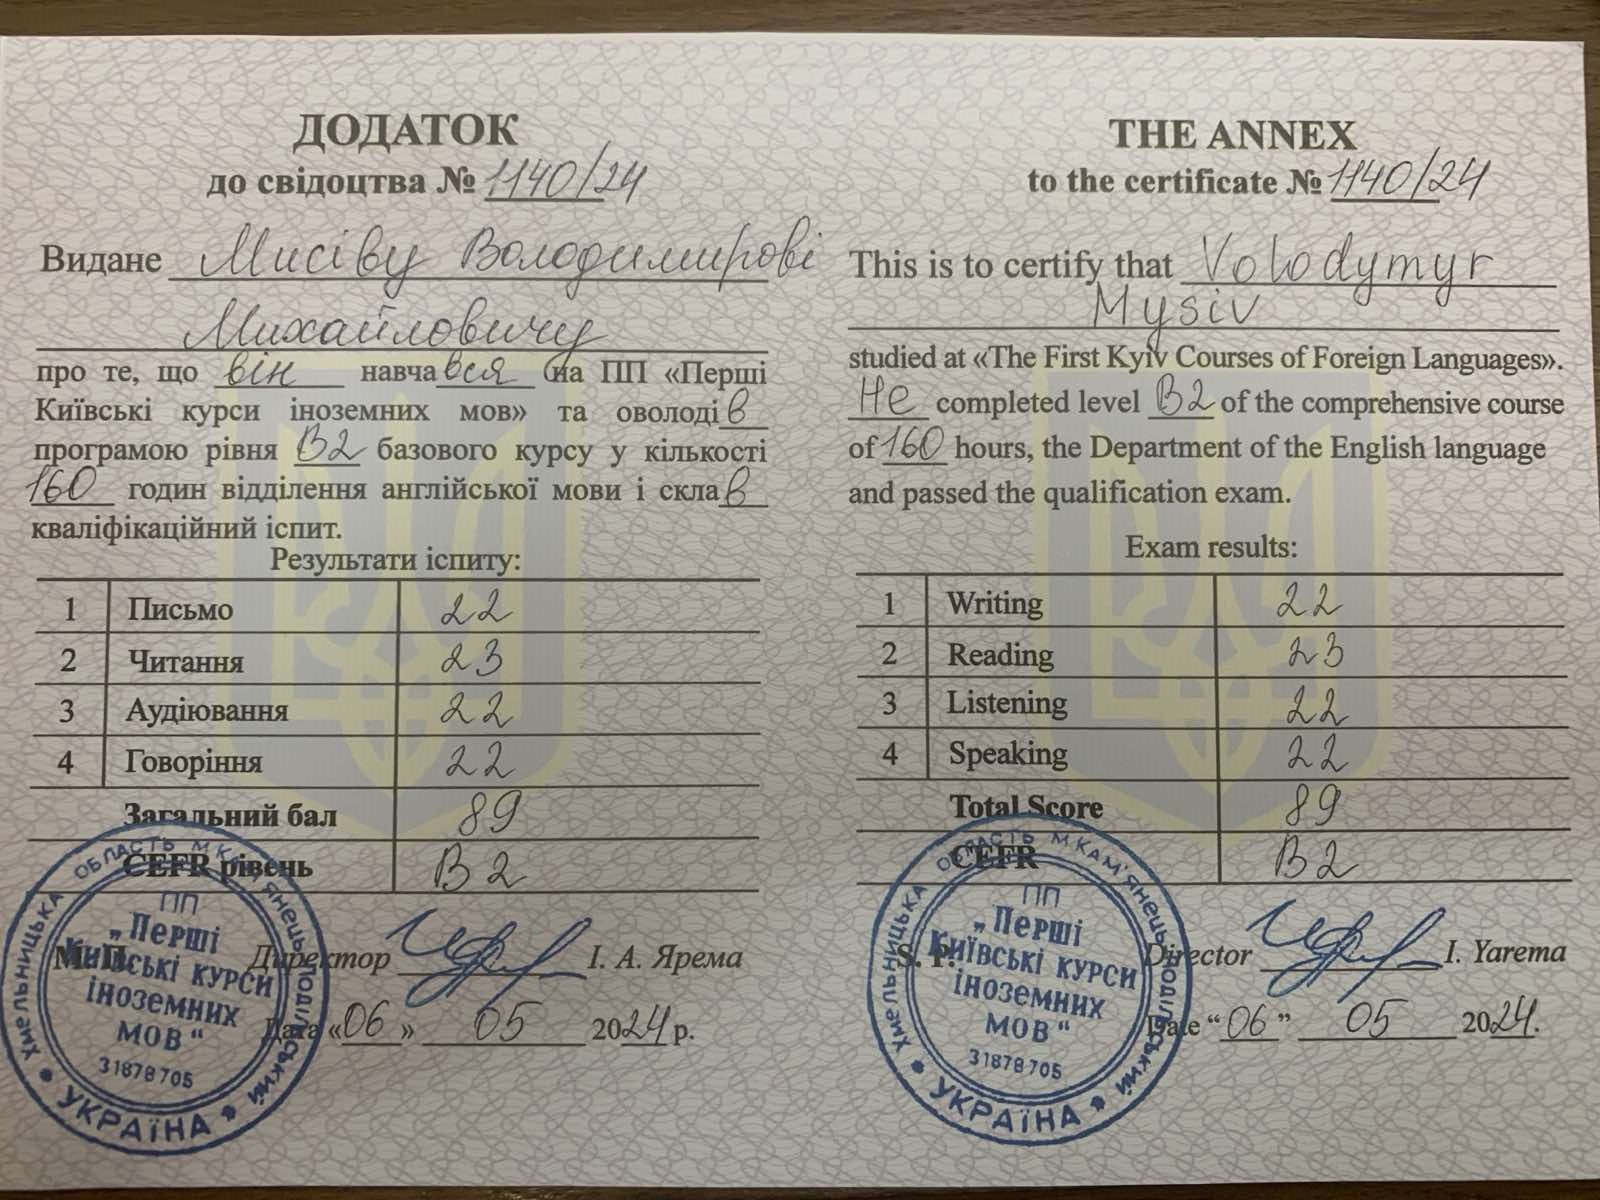 ДОДАТОК
до свідоцтва № 1140/24
Видане Мисіву Володимирові
Михайловичу
про те, що він навчався на ПП «Перші
Київські курси іноземних мов» та оволодів
програмою рівня В2 базового курсу у кількості
160 годин відділення англійської мови і склав
кваліфікаційний іспит.
Результати іспиту:
1 Письмо 22
2 Читання 23
3 Аудіювання 22
4 Говоріння 22
Загальний бал 89
CEFR рівень B2
М. П. Директор І. А. Ярема
Дата «06» 05 2024 р.
ХМЕЛЬНИЦЬКА ОБЛАСТЬ М.КАМ'ЯНЕЦЬ-ПОДІЛЬСЬКИЙ
ПП
„Перші
Київські курси
іноземних
мов“
31878705
УКРАЇНА
THE ANNEX
to the certificate № 1140/24
This is to certify that Volodymyr
Mysiv
studied at «The First Kyiv Courses of Foreign Languages».
He completed level B2 of the comprehensive course
of 160 hours, the Department of the English language
and passed the qualification exam.
Exam results:
1 Writing 22
2 Reading 23
3 Listening 22
4 Speaking 22
Total Score 89
CEFR B2
S. P. Director I. Yarema
Date “06” 05 2024.
ХМЕЛЬНИЦЬКА ОБЛАСТЬ М.КАМ'ЯНЕЦЬ-ПОДІЛЬСЬКИЙ
ПП
„Перші
Київські курси
іноземних
мов“
31878705
УКРАЇНА